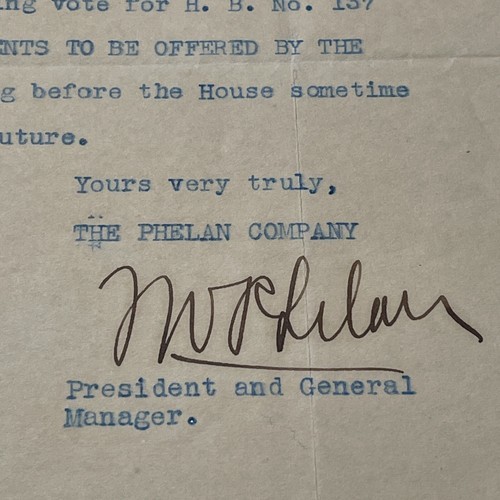 ing vote for H. B. No. 137
ENTS TO BE OFFERED BY THE
g before the House sometime
uture.
Yours very truly,
THE PHELAN COMPANY
Phelan
President and General
Manager.